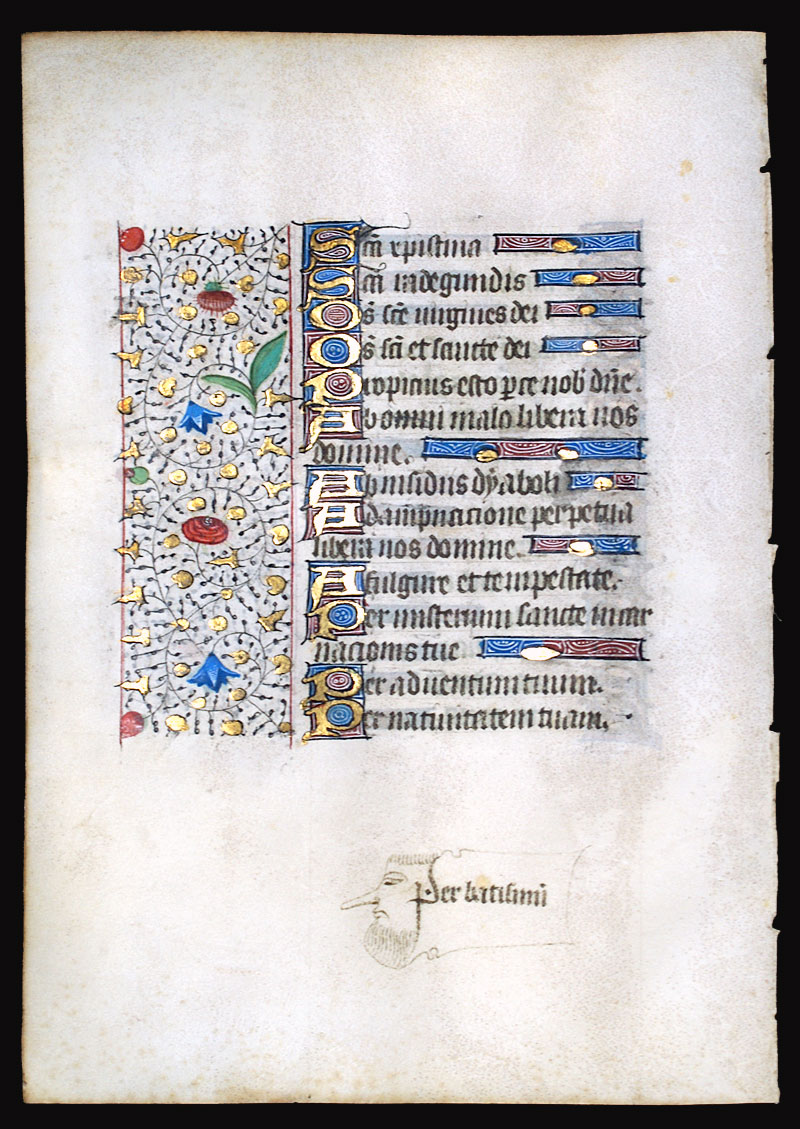 Scā xpistina
Scā radegundis
Om̄s scē uirgines dei
Om̄s scī et sancte dei
Propicius esto p̄ce nob̄ dn̄e.
Ab omni malo libera nos
domine.
Ab insidiis dyaboli
A dampnacione perpetua
libera nos domine.
A fulgure et tempestate.
Per misterium sancte incar
nacionis tue
Per aduentum tuum.
Per natiuitatem tuam.
Per batismū